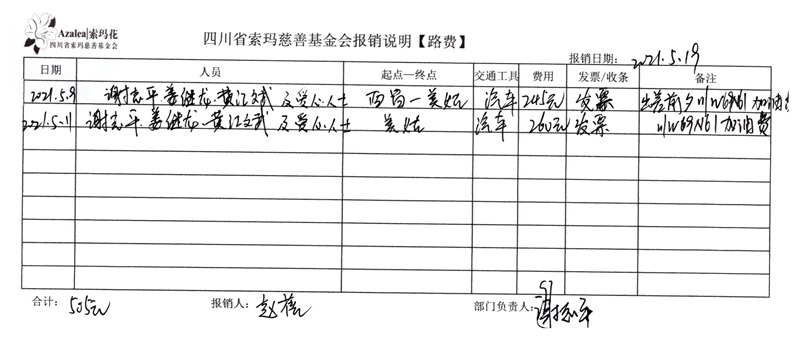 Azalea|索玛花
四川省索玛慈善基金会
四川省索玛慈善基金会报销说明【路费】
报销日期: 2021.5.19
日期 人员 起点—终点 交通工具 费用 发票/收条 备注
2021.5.9 谢志平. 姜继龙. 黄江文武 及爱心人士 西昌—美姑 汽车 245元 发票 川W69N61加油
2021.5.11 谢志平. 姜继龙. 黄江文武 及爱心人士 美姑 汽车 260元 发票 川W69N61加油费
合计: 505元 报销人: 赵 部门负责人: 谢志平